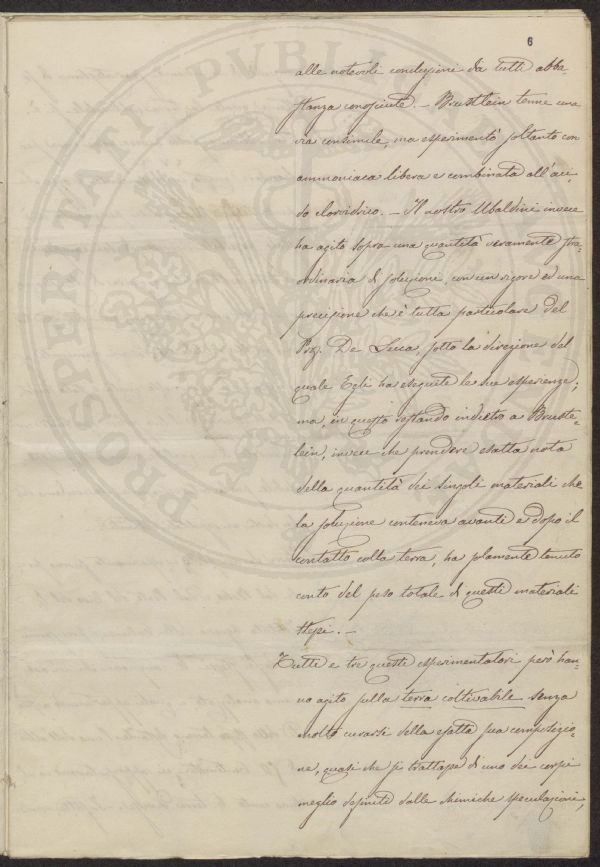 6
alle notevoli conclusioni da tutti abba-
stanza conosciute. – Brustlein tenne una
via consimile, ma esperimentò soltanto con
ammoniaca libera e combinata all'aci-
do cloroidrico. – Il nostro Ubaldini invece
ha agito sopra una quantità veramente stra-
ordinaria di soluzione, con un rigore ed una
precisione che è tutta particolare del
Prof. De Luca, sotto la direzione del
quale Egli ha eseguite le sue esperienze;
ma, in questo restando indietro a Bruste-
lein, invece che prendere esatta nota
della quantità dei singoli materiali che
la soluzione conteneva avanti e dopo il
contatto colla terra, ha solamente tenuto
conto del peso totale di questi materiali
stessi. –
Tutti e tre questi esperimentatori però han-
no agito sulla terra coltivabile senza
molto curarsi della esatta sua composizio-
ne, quasi che si trattasse di uno dei corpi
meglio definiti dalle chimiche speculazioni,
PROSPERITATI PVBLICAE